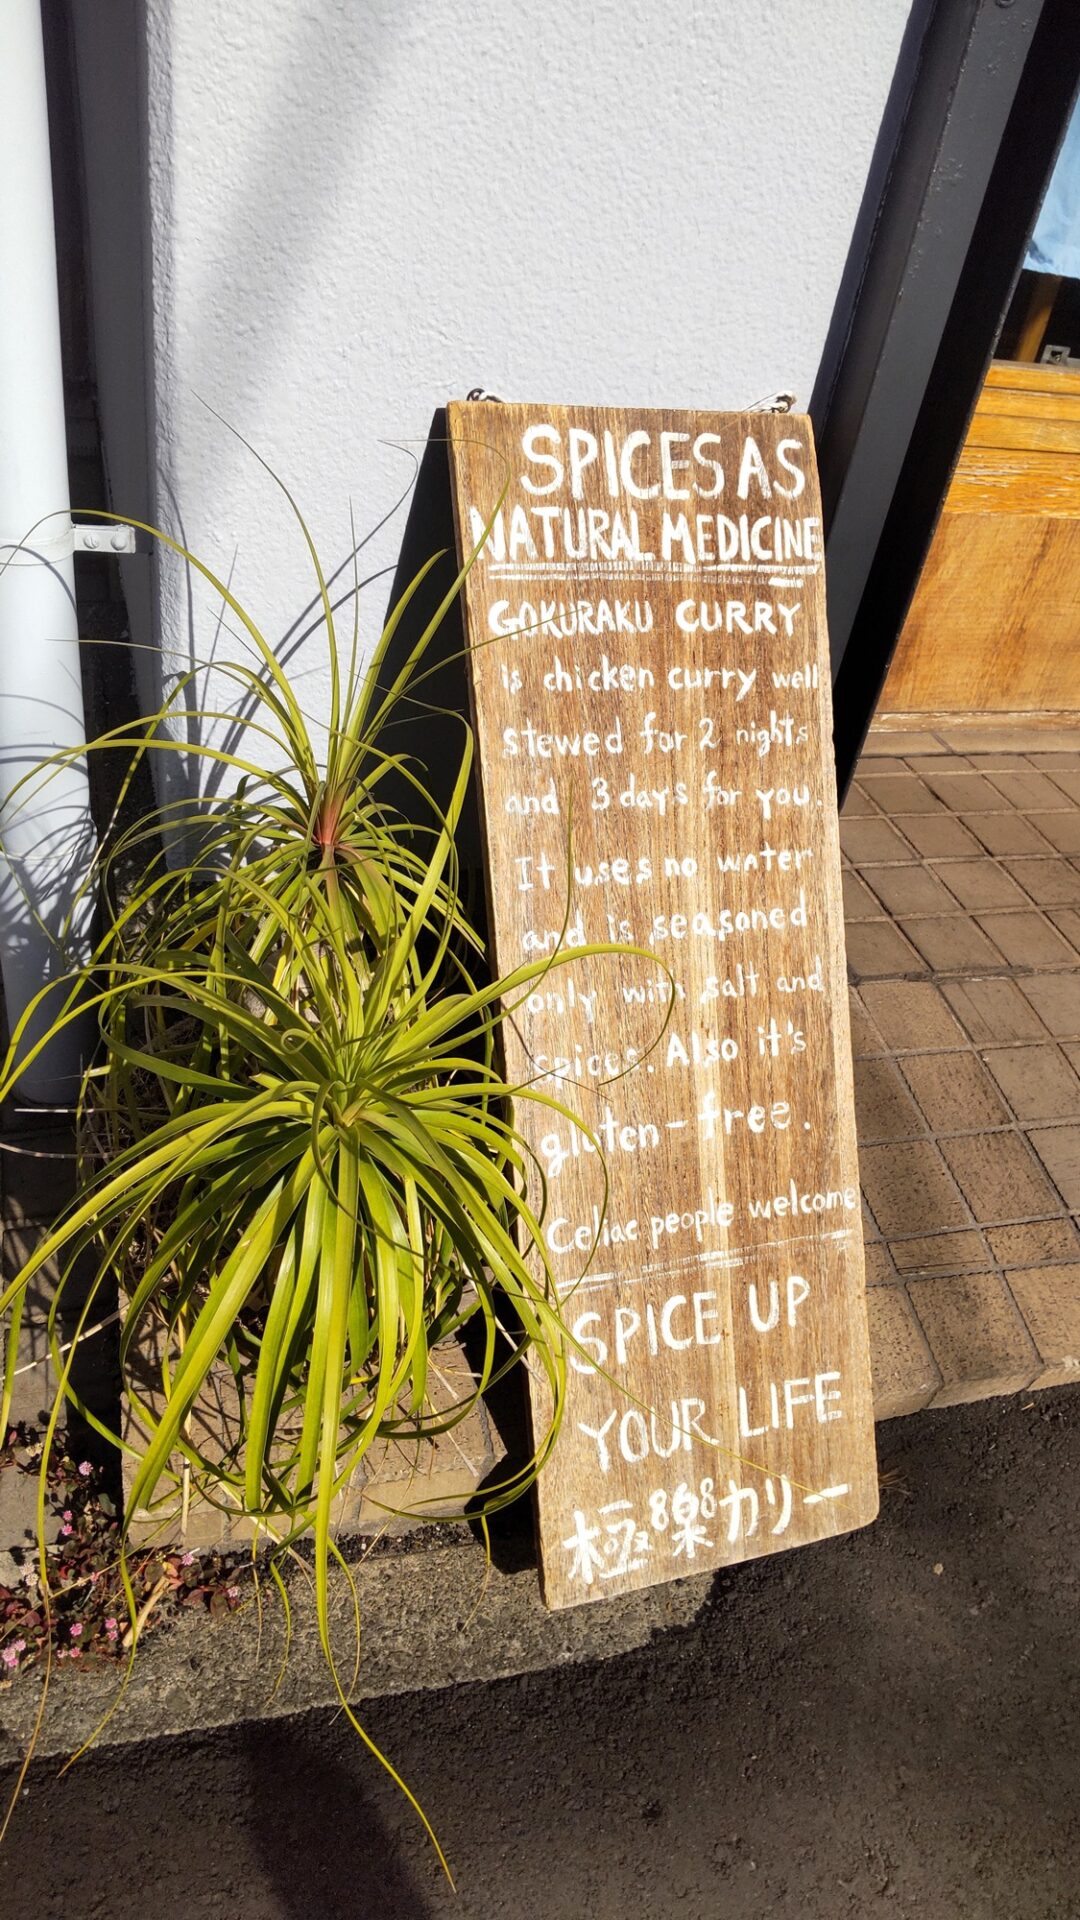 SPICES AS
NATURAL MEDICINE
GOKURAKU CURRY
is chicken curry well
stewed for 2 nights
and 3 days for you.
It uses no water
and is seasoned
only with salt and
spices. Also it's
gluten-free.
Celiac people welcome
SPICE UP
YOUR LIFE
極楽カリー